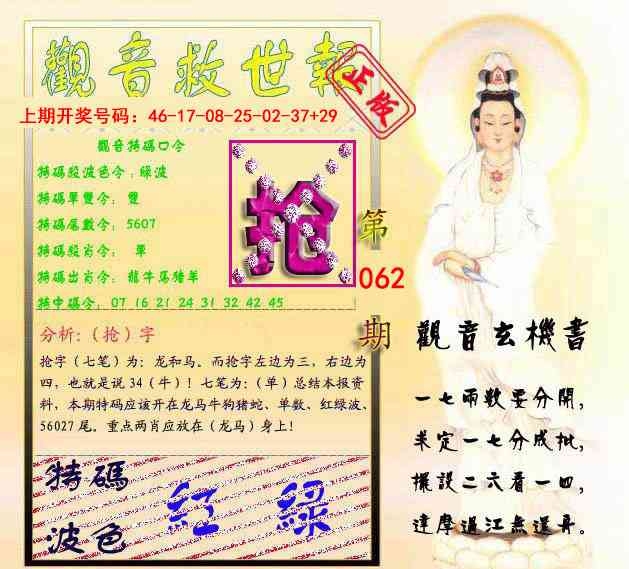 觀音救世報
正版
上期开奖号码：46-17-08-25-02-37+29
觀音特碼口令
特碼段波色令：綠波
特碼單雙令： 雙
特碼尾數令： 5607
特碼段肖令： 單
特碼出肖令： 龍牛马猪羊
特中碼令： 07 16 21 24 31 32 42 45
抢
第
062
期
分析:（抢）字
抢字（七笔）为：龙和马。而抢字左边为三，右边为
四，也就是说 34（牛）！七笔为:（单）总结本报资
料，本期特码应该开在龙马牛狗猪蛇、单数、红绿波、
56027 尾。重点两肖应放在（龙马）身上！
特碼
波色
紅 綠
觀音玄機書
一七兩數要分開，
求定一七分成批，
擺設二六看一四，
達摩過江無選哥。